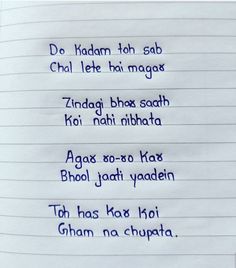 Do Kadam toh sab
Chal lete hai magar
Zindagi bhar saath
Koi nahi nibhata
Agar ro-ro Kar
Bhool jaati yaadein
Toh has Kar Koi
Gham na chupata.